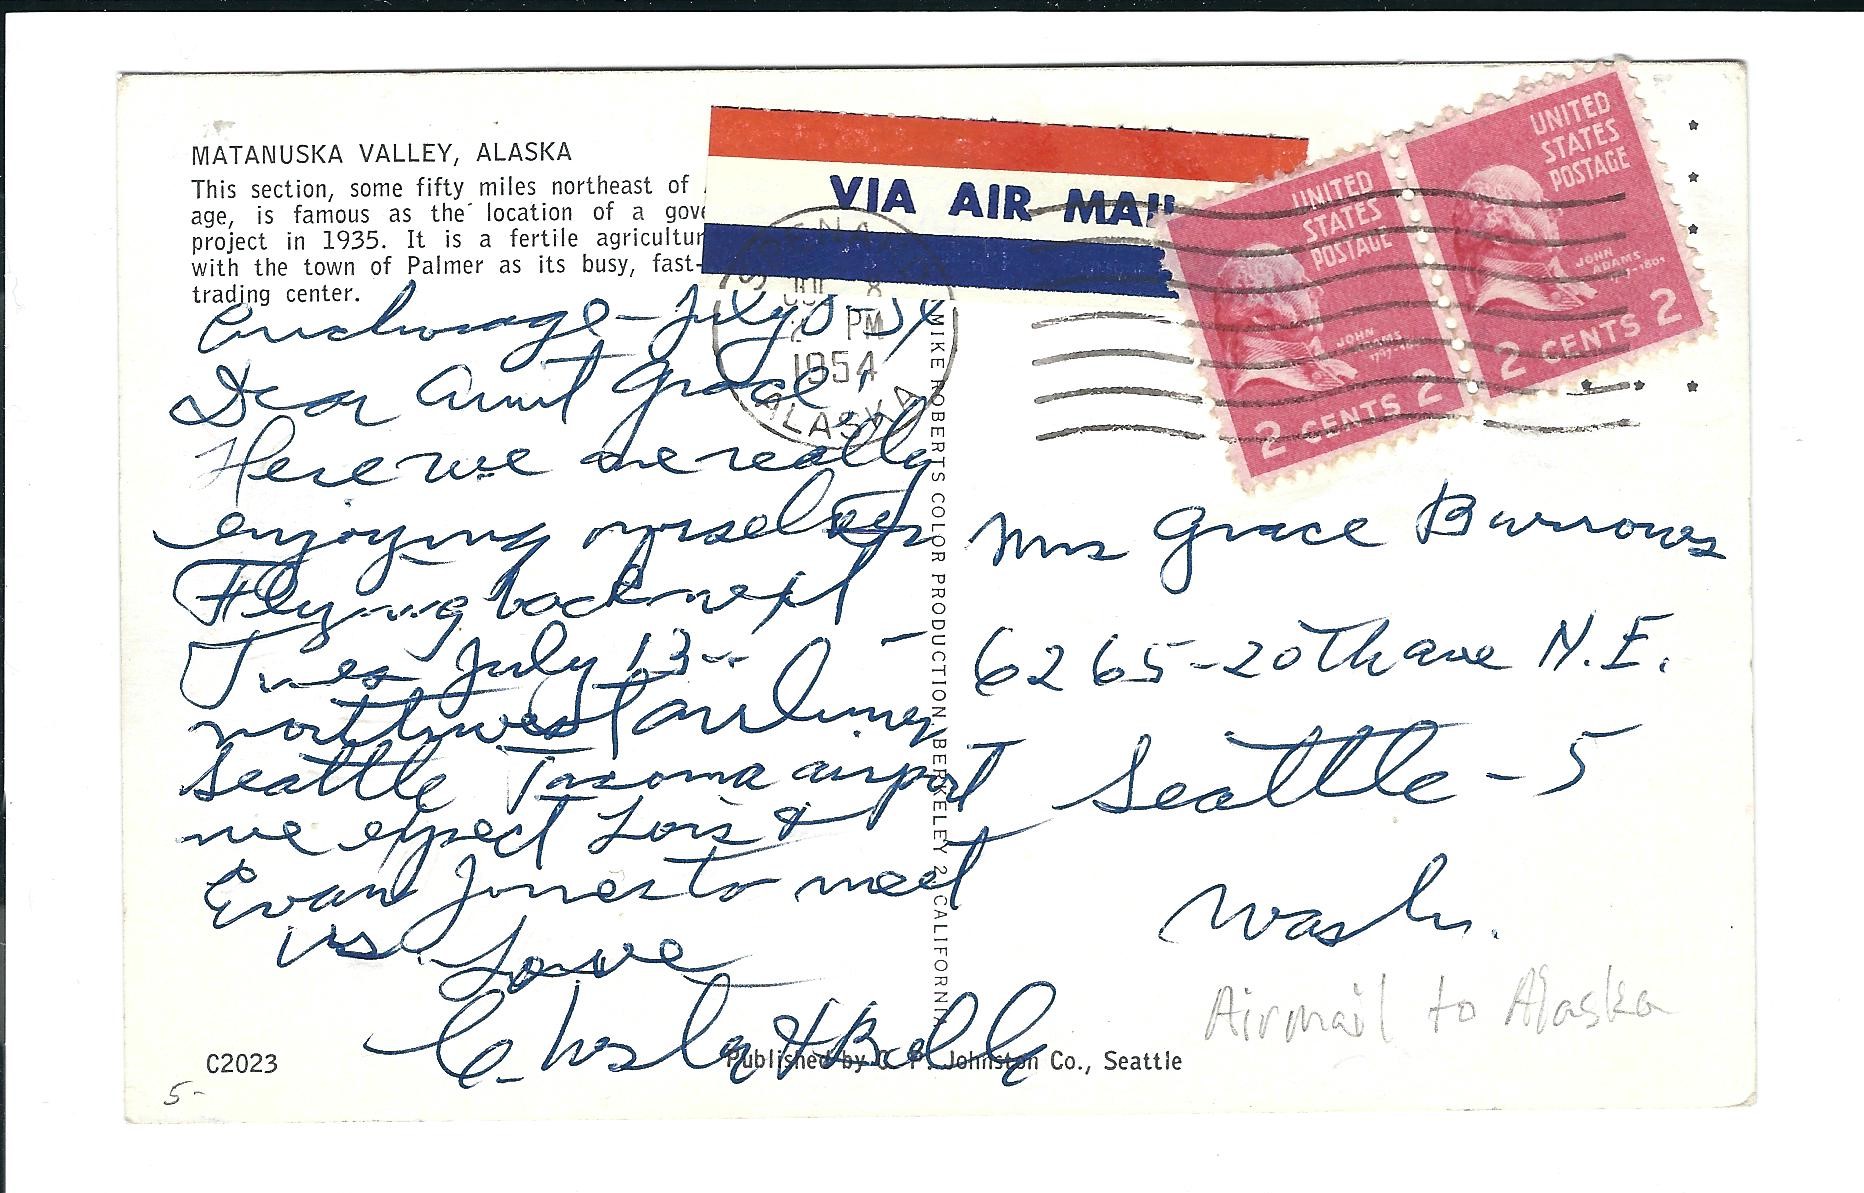 MATANUSKA VALLEY, ALASKA
This section, some fifty miles northeast of
age, is famous as the location of a gove
project in 1935. It is a fertile agricultur
with the town of Palmer as its busy, fast-
trading center.
Anchorage - July 8 - 54
Dear Aunt Grace,
Here we are really
enjoying ourselves
Flying back next
Tues July 13 -
northwest airlines
Seattle Tacoma airport
we expect Lois &
Evan Jones to meet
us. Love
Chester & Belle
VIA AIR MAIL
JUL 8
PM
1954
ALASKA
UNITED
STATES
POSTAGE
JOHN
ADAMS
2 CENTS 2
UNITED
STATES
POSTAGE
JOHN
ADAMS
1797-1801
2 CENTS 2
MIKE ROBERTS COLOR PRODUCTION, BERKELEY 2, CALIFORNIA
Mrs Grace Burrows
6265-20th ave N.E.
Seattle - 5
Wash.
Airmail to Alaska
C2023
Published by C. P. Johnston Co., Seattle
5-